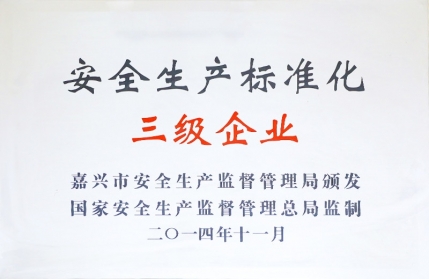 安全生产标准化
三级企业
嘉兴市安全生产监督管理局颁发
国家安全生产监督管理总局监制
二〇一四年十一月